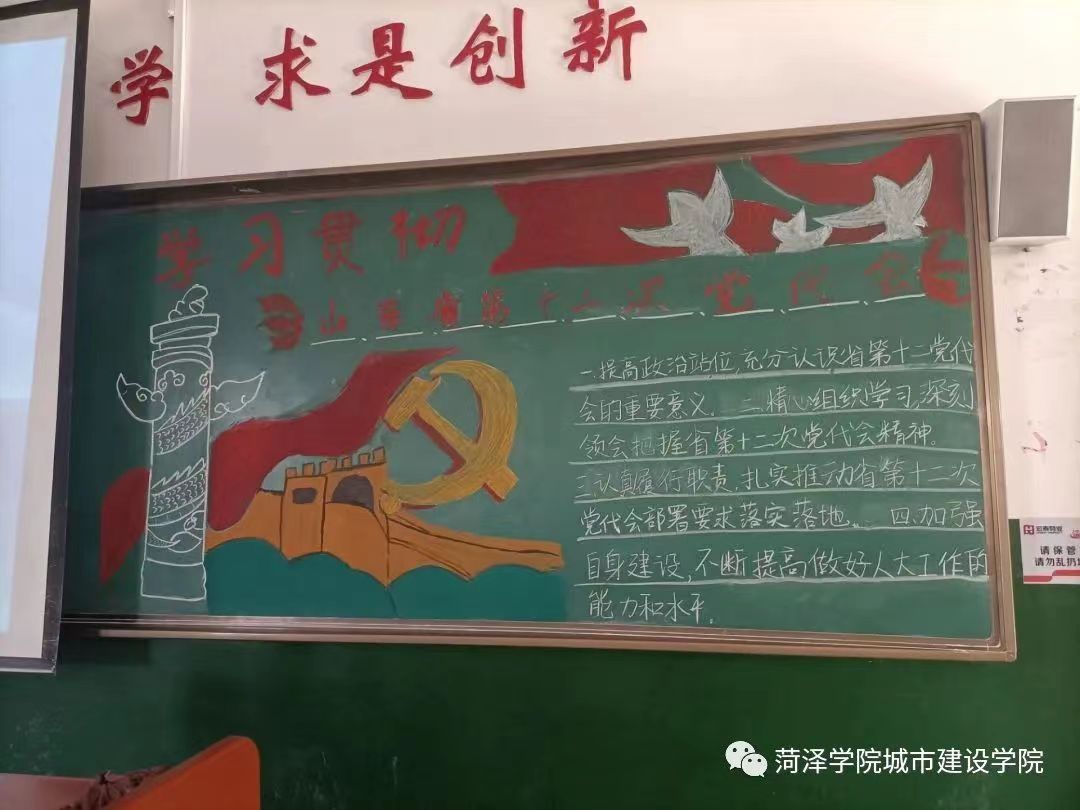 学 求是创新
学习贯彻
山东省第十二次党代会
一.提高政治站位,充分认识省第十二党代
会的重要意义. 二.精心组织学习,深刻
领会把握省第十二次党代会精神.
三.认真履行职责,扎实推动省第十二次
党代会部署要求落实落地. 四.加强
自身建设,不断提高做好人大工作的
能力和水平.
请保管
请勿乱扔
菏泽学院城市建设学院